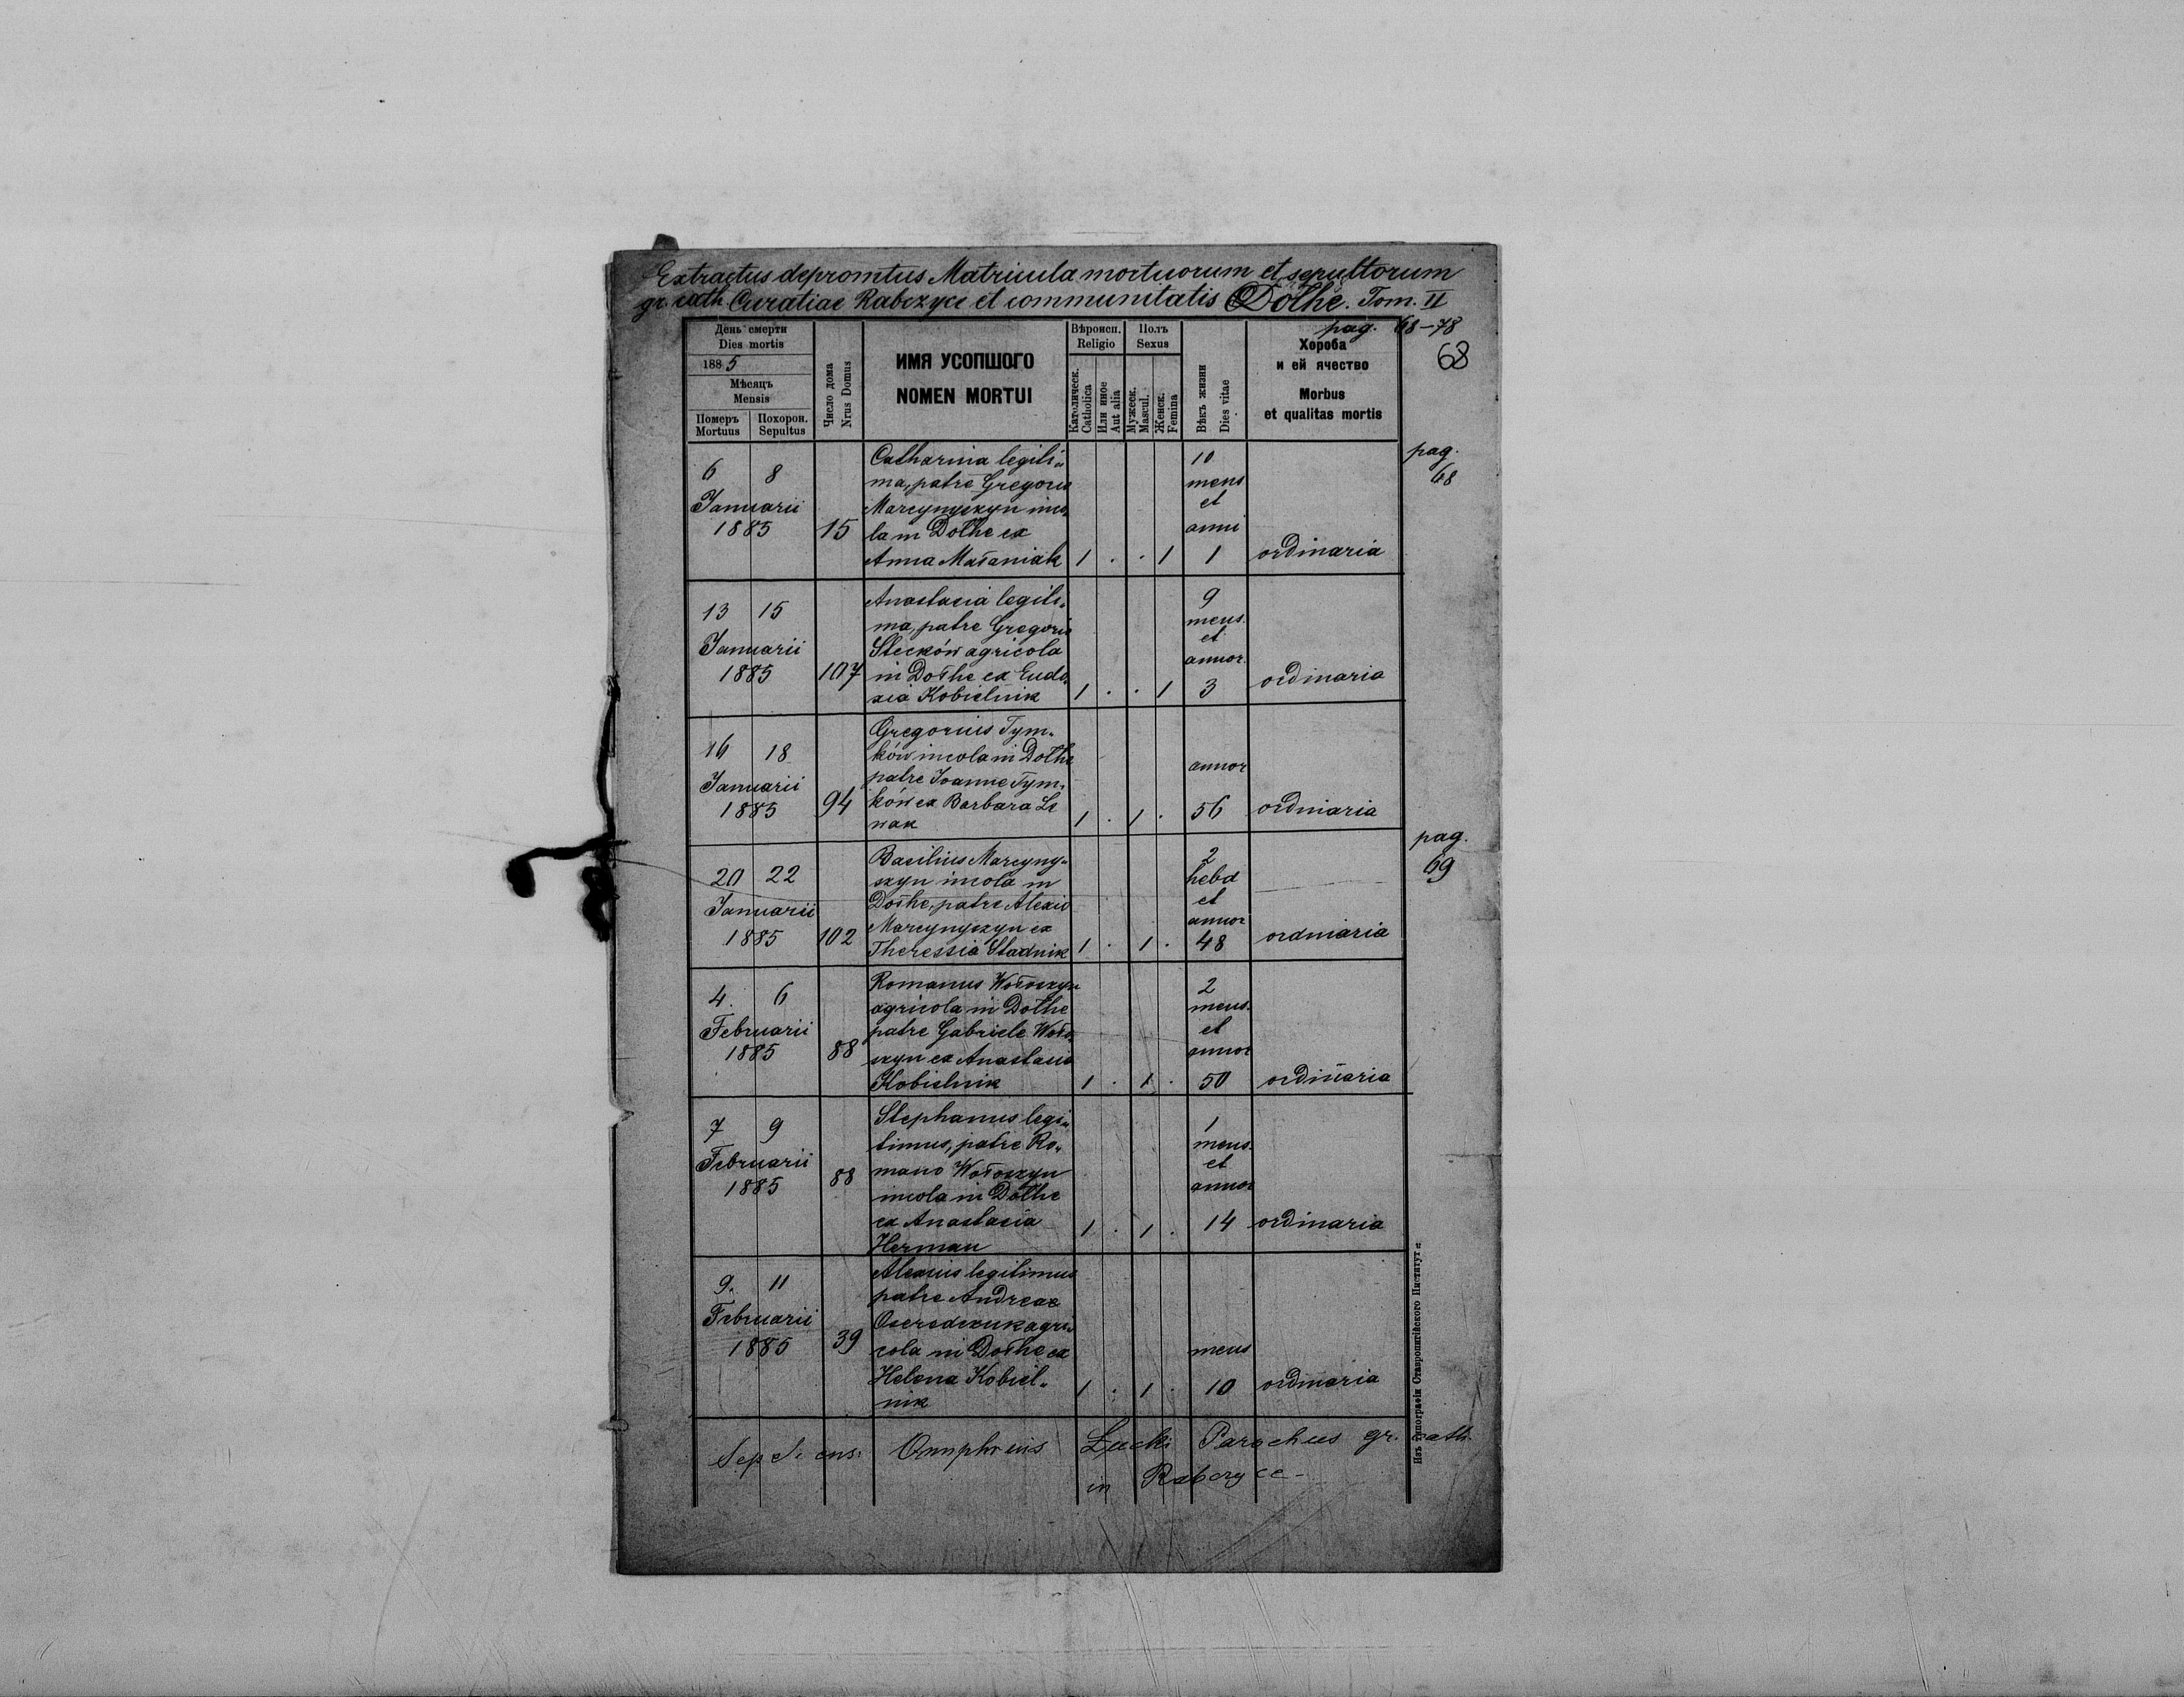 Extractus depromtus Matricula mortuorum et sepultorum
gr. cath. Curatiae Rabczyce et communitatis Dołhe. Tom. II
pag. 68-78
68
День смерти
Dies mortis
1885
Мѣсяць
Mensis
Померъ
Mortuus
Похорон.
Sepultus
Число дома
Nrus Domus
ИМЯ УСОПШОГО
NOMEN MORTUI
Вѣроисп.
Religio
Католическ.
Catholica
Или иное
Aut alia
Полъ
Sexus
Мужеск.
Mascul.
Женск.
Femina
Вѣкъ жизни
Dies vitae
Хороба
и ей ячество
Morbus
et qualitas mortis
pag.
68
6 8
Januarii
1885
15
Catharina legiti„
ma, patre Gregorio
Marcynyszyn inco„
la in Dołhe ex
Anna Małaniak
1 . . 1
10
mens
et
anni
1
ordinaria
13 15
Januarii
1885
107
Anastasia legiti„
ma, patre Gregorio
Stecków agricola
in Dołhe ex Eudo„
xia Kobielnik
1 . . 1
9
mens.
et
annor.
3
ordinaria
16 18
Januarii
1885
94
Gregorius Tym„
ków incola in Dołhe
patre Joanne Tym„
ków ex Barbara Le
wak
1 . 1 .
annor
56
ordinaria
pag.
69
20 22
Januarii
1885
102
Basilius Marcyny„
szyn incola in
Dołhe, patre Alexio
Marcynyszyn ex
Theressia Stadnik
1 . 1 .
2
hebd
et
annor
48
ordinaria
4. 6
Februarii
1885
88
Romanus Wołoszyn
agricola in Dołhe
patre Gabriele Woło„
szyn ex Anastasia
Kobielnik
1 . 1 .
2
mens.
et
annor
50
ordinaria
7 9
Februarii
1885
88
Stephanus legi„
timus, patre Ro„
mano Wołoszyn
incola in Dołhe
ex Anastasia
Herman
1 . 1 .
1
mens.
et
annor
14
ordinaria
9. 11
Februarii
1885
39
Alexius legitimus
patre Andreae
agri„
cola in Dołhe ex
Helena Kobiel„
nik
1 . 1 .
mens
10
ordinaria
Onuphrius Łucki Parochus gr. cath.
in Rabczyce
Изъ типографіи Ставропигійского Института